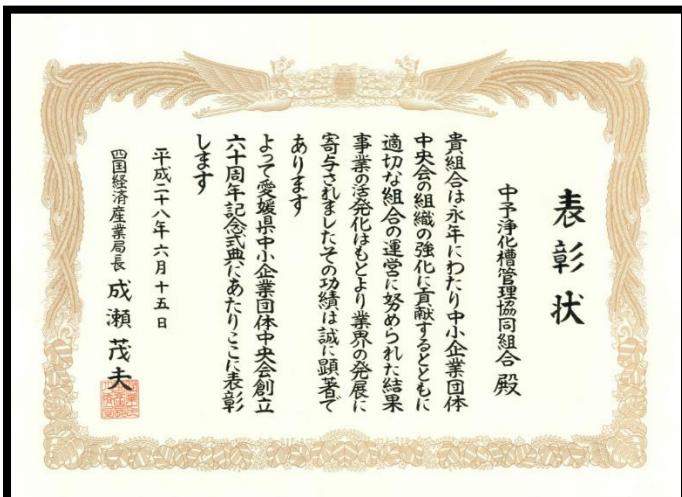 表彰状
中予浄化槽管理協同組合 殿
貴組合は永年にわたり中小企業団体
中央会の組織の強化に貢献するとともに
適切な組合の運営に努められた結果
事業の活発化はもとより業界の発展に
寄与されましたその功績は誠に顕著で
あります
よって愛媛県中小企業団体中央会創立
六十周年記念式典にあたりここに表彰
します
平成二十八年六月十五日
四国経済産業局長 成瀬茂夫